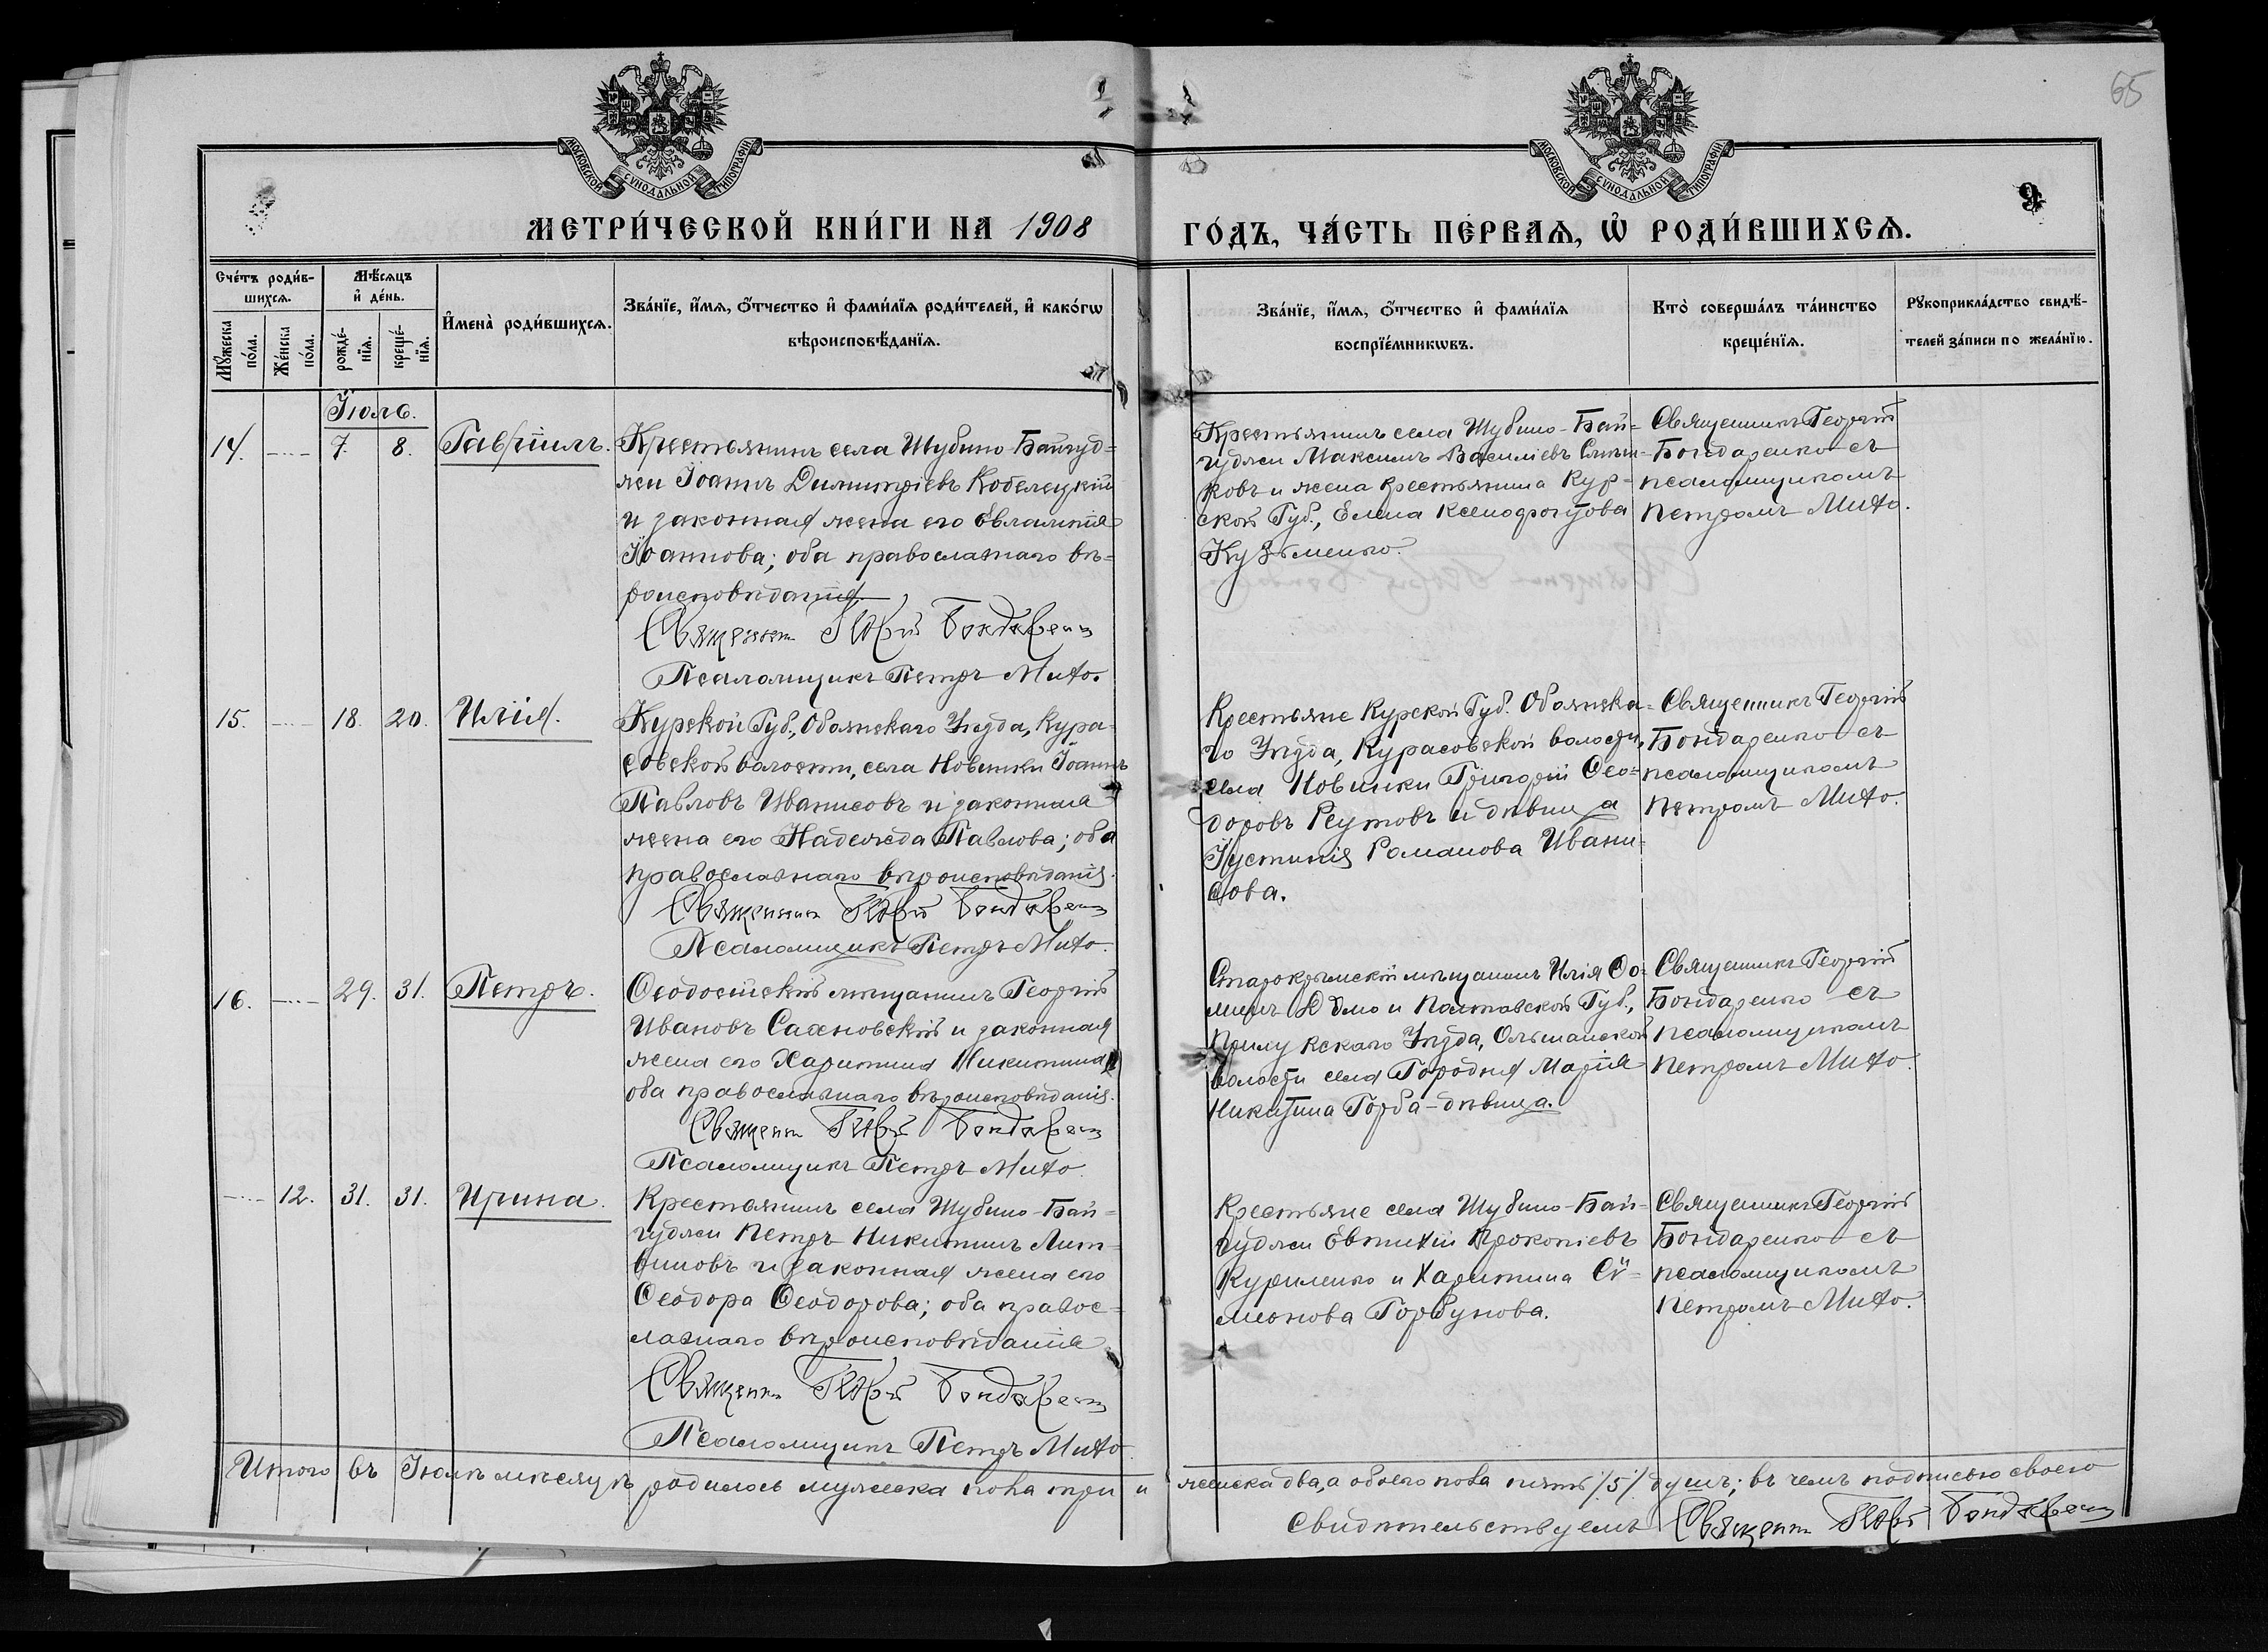 65
МОСКОВСКОЙ СѴНОДАЛЬНОЙ ТИПОГРАФІИ
МОСКОВСКОЙ СѴНОДАЛЬНОЙ ТИПОГРАФІИ
9
МЕТРИ́ЧЕСКОЙ КНИ́ГИ НА 1908
ГО́ДЪ, ЧА́СТЬ ПЕ́РВАѦ, Ѡ҆ РОДИ́ВШИХСѦ.
Сче́тъ роди́в-
шихсѧ.
Мѣ́сѧцъ
и҆ де́нь.
Мꙋ́жеска
по́ла.
Же́нска
по́ла.
рожде́-
нїѧ.
креще́-
нїѧ.
И҆мена̀ роди́вшихсѧ.
Зва́нїе, и҆́мѧ, ѻ҆́тчество и҆ фами́лїѧ роди́телей, и҆ како́гѡ
вѣроисповѣ́данїѧ.
Зва́нїе, и҆́мѧ, ѻ҆́тчество и҆ фами́лїѧ
воспрїе́мникѡвъ.
Кто̀ соверша́лъ та́инство
креще́нїѧ.
Рꙋкоприкла́дство свидѣ́-
телей за́писи по жела́нїю.
Іюль.
14. 7. 8. Гавріилъ.
Крестьянинъ села Шубино-Байгуд=
жи Іоаннъ Димитріевъ Кобелецкій
и законная жена его Евлампія
Іоаннова; оба православнаго вѣ=
роисповѣданія.
Священник Георгій Бондаренко
Псаломщикъ Петръ Михо.
Крестьянинъ села Шубино-Бай=
гуджи Максимъ Василіевъ
ковъ и жена крестьянина Кур=
ской Губ., Елена Ксенофонтова
Кузьменко.
Священникъ Георгій
Бондаренко съ
псаломщикомъ
Петромъ Михо.
15. 18. 20. Илія.
Курской Губ., Обоянскаго Уѣзда, Кура=
совской волости, села Новинки Іоаннъ
Павловъ Иванисовъ и законная
жена его Надежда Павлова; оба
православнаго вѣроисповѣданія.
Священник Георгій Бондаренко
Псаломщикъ Петръ Михо.
Крестьяне Курской Губ. Обоянска=
го Уѣзда, Курасовской волости,
села Новинки Григорій Ѳео=
доровъ Реутовъ и дѣвица
Іустинія Романова Ивани=
сова.
Священникъ Георгій
Бондаренко съ
псаломщикомъ
Петромъ Михо.
16. 29. 31. Петръ.
Ѳеодосійскій мѣщанинъ Георгій
Ивановъ Сахновскій и законная
жена его Харитина Никитина;
оба православнаго вѣроисповѣданія.
Священник Георгій Бондаренко
Псаломщикъ Петръ Михо.
Старокрымскій мѣщанинъ Илія Ѳо=
минъ и Полтавской Губ.,
Прилукскаго Уѣзда, Ольшанской
волости села Городня Марія
Никитина Горба-дѣвица.
Священникъ Георгій
Бондаренко съ
псаломщикомъ
Петромъ Михо.
12. 31. 31. Ирина.
Крестьянинъ села Шубино-Бай=
гуджи Петръ Никитинъ Лит=
виновъ и законная жена его
Ѳеодора Ѳеодорова; оба правос=
лавнаго вѣроисповѣданія
Священник Георгій Бондаренко
Псаломщикъ Петръ Михо
Крестьяне села Шубино-Бай=
гуджи Евтихій Прокопіевъ
Куриленко и Харитина Сѵ=
меонова Горбунова.
Священникъ Георгій
Бондаренко съ
псаломщикомъ
Петромъ Михо.
Итого въ Іюлѣ мѣсяцѣ родилось мужеска пола три и женска два, а обоего пола пять /5/ душъ; въ чемъ подписью своею
Свидѣтельствуемъ Священник Георгій Бондаренко